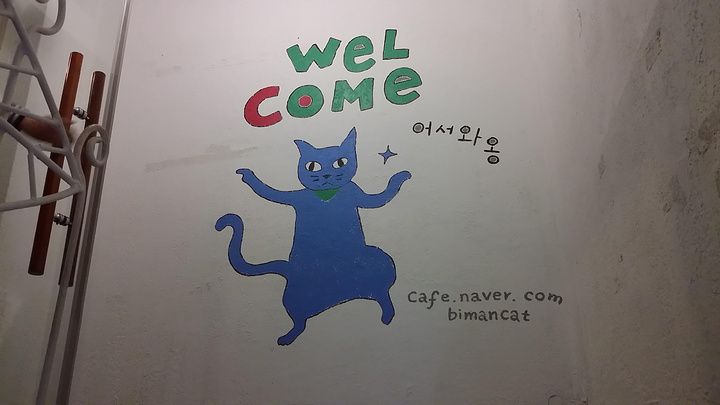 WeL
COMe
어서와용
cafe.naver.com
bimancat